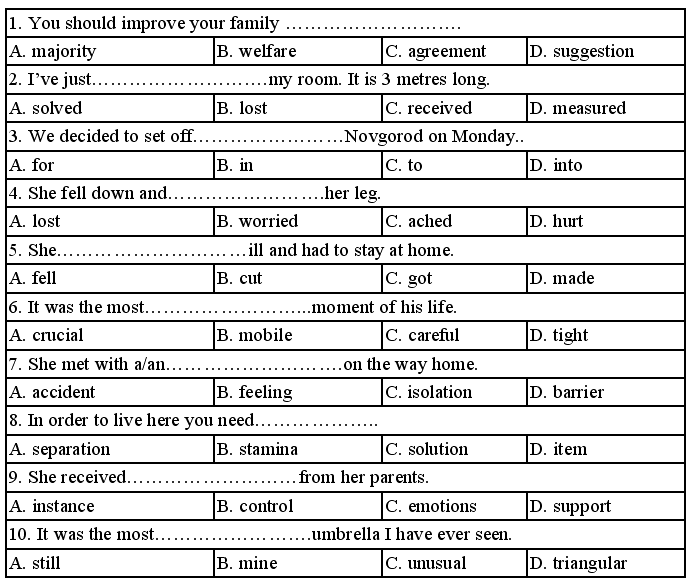 1. You should improve your family ……………………….
A. majority B. welfare C. agreement D. suggestion
2. I’ve just……………………….my room. It is 3 metres long.
A. solved B. lost C. received D. measured
3. We decided to set off……………………Novgorod on Monday..
A. for B. in C. to D. into
4. She fell down and…………………….her leg.
A. lost B. worried C. ached D. hurt
5. She…………………………ill and had to stay at home.
A. fell B. cut C. got D. made
6. It was the most……………………...moment of his life.
A. crucial B. mobile C. careful D. tight
7. She met with a/an……………………….on the way home.
A. accident B. feeling C. isolation D. barrier
8. In order to live here you need………………..
A. separation B. stamina C. solution D. item
9. She received………………………from her parents.
A. instance B. control C. emotions D. support
10. It was the most…………………….umbrella I have ever seen.
A. still B. mine C. unusual D. triangular